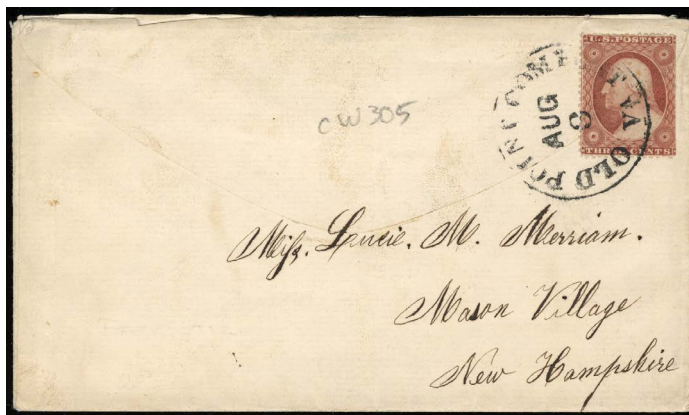 U.S. POSTAGE
THREE CENTS
OLD POINT COMFORT VA.
AUG
CW305
Miss. Lucie. M. Merriam.
Mason Village
New Hampshire